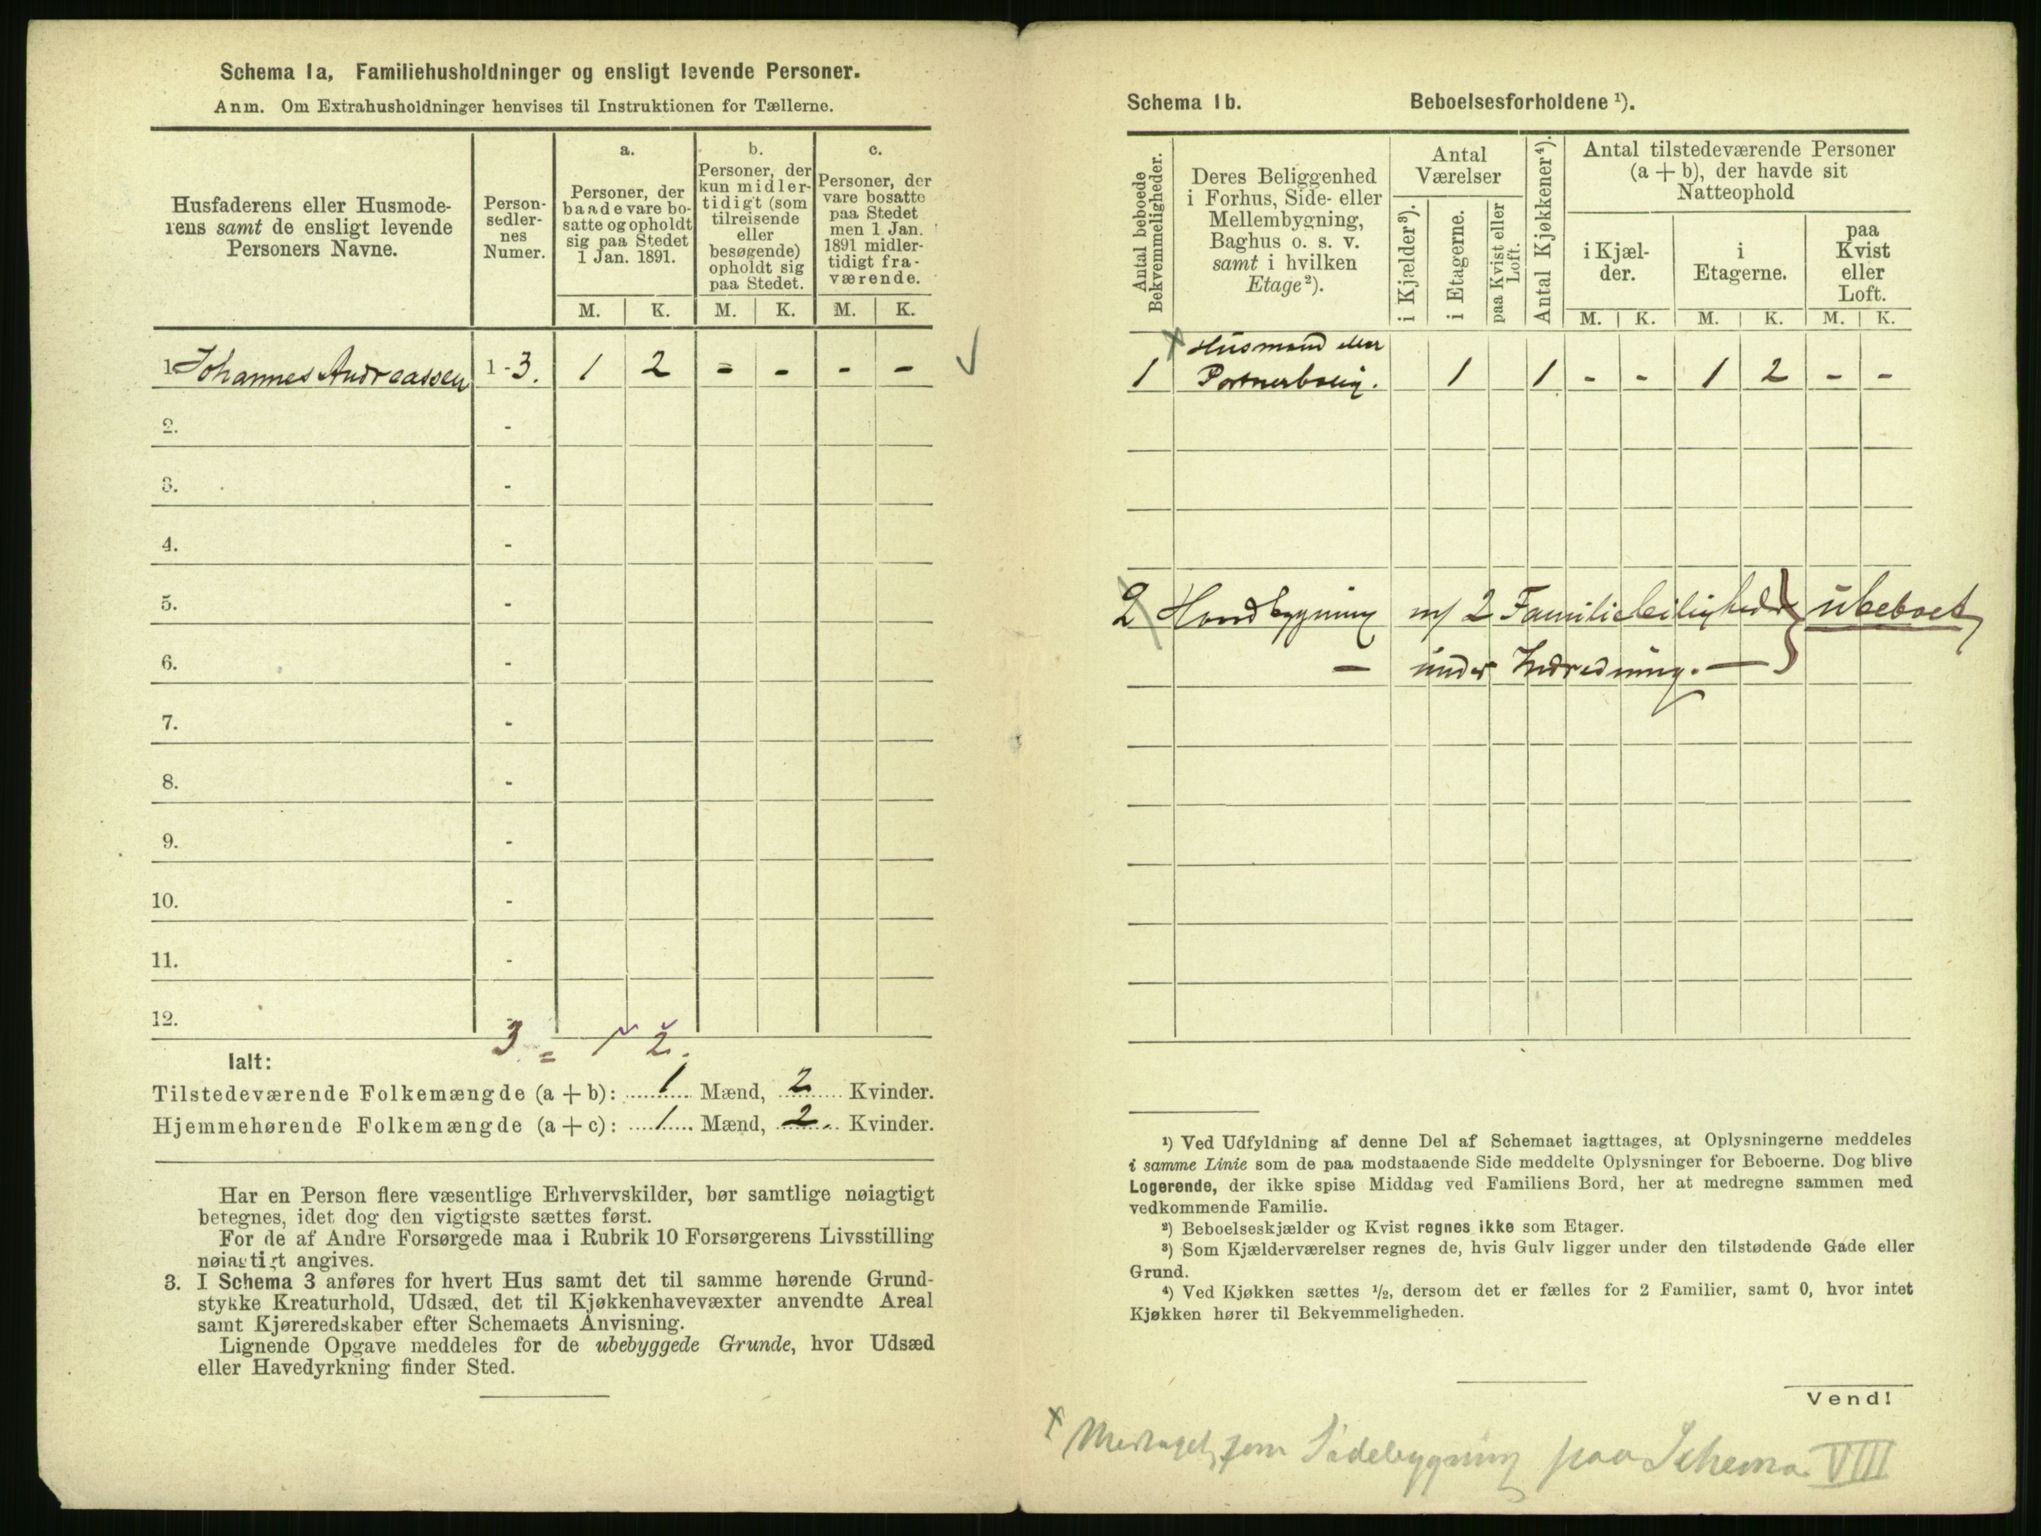 Schema 1a, Familiehusholdninger og ensligt levende Personer.
Anm. Om Extrahusholdninger henvises til Instruktionen for Tællerne.
Husfaderens eller Husmode-
rens samt de ensligt levende
Personers Navne.
Person-
sedler-
nes
Numer.
a.
Personer, der
baade vare bo-
satte og opholdt
sig paa Stedet
1 Jan. 1891.
b.
Personer, der
kun midler-
tidigt (som
tilreisende
eller
besøgende)
opholdt sig
paa Stedet.
c.
Personer, der
vare bosatte
paa Stedet
men 1 Jan.
1891 midler-
tidigt fra-
værende.
M. K. M. K. M. K.
1. Johannes Andreassen 1 - 3. 1 2 - - - -
2. -
3. -
4. -
5. -
6. -
7. -
8. -
9. -
10. -
11. -
12.
3 = 1 2.
Ialt:
Tilstedeværende Folkemængde (a + b): 1 Mænd, 2 Kvinder.
Hjemmehørende Folkemængde (a + c): 1 Mænd, 2 Kvinder.
Har en Person flere væsentlige Erhvervskilder, bør samtlige nøiagtigt
betegnes, idet dog den vigtigste sættes først.
For de af Andre Forsørgede maa i Rubrik 10 Forsørgerens Livsstilling
nøiagtigt angives.
3. I Schema 3 anføres for hvert Hus samt det til samme hørende Grund-
stykke Kreaturhold, Udsæd, det til Kjøkkenhavevæxter anvendte Areal
samt Kjøreredskaber efter Schemaets Anvisning.
Lignende Opgave meddeles for de ubebyggede Grunde, hvor Udsæd
eller Havedyrkning finder Sted.
Schema 1b. Beboelsesforholdene ¹).
Antal beboede
Bekvemmeligheder.
Deres Beliggenhed
i Forhus, Side- eller
Mellembygning,
Baghus o. s. v.
samt i hvilken
Etage ²).
Antal
Værelser
i Kjælder ³).
i Etagerne.
paa Kvist eller
Loft.
Antal Kjøkkener ⁴).
Antal tilstedeværende Personer
(a + b), der havde sit
Natteophold
i Kjæl-
der.
i
Etagerne.
paa
Kvist
eller
Loft.
M. K. M. K. M. K.
x Husmand eller
1 Portnerbolig. 1 1 - - 1 2 - -
2 Hovedbygning m/ 2 Familieleiligheder } ubeboet
— under Indredning. —
¹) Ved Udfyldning af denne Del af Schemaet iagttages, at Oplysningerne meddeles
i samme Linie som de paa modstaaende Side meddelte Oplysninger for Beboerne. Dog blive
Logerende, der ikke spise Middag ved Familiens Bord, her at medregne sammen med
vedkommende Familie.
²) Beboelseskjælder og Kvist regnes ikke som Etager.
³) Som Kjælderværelser regnes de, hvis Gulv ligger under den tilstødende Gade eller
Grund.
⁴) Ved Kjøkken sættes ½, dersom det er fælles for 2 Familier, samt 0, hvor intet
Kjøkken hører til Bekvemmeligheden.
Vend!
x Medtaget som Sidebygning paa Schema VIII